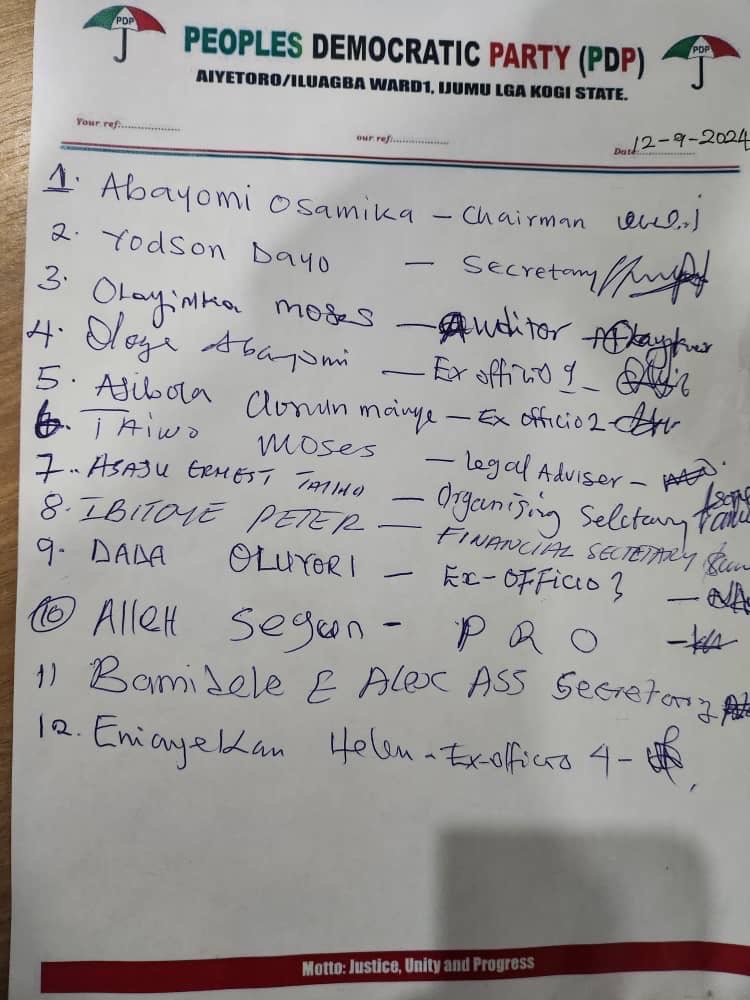 PDP
PDP
PEOPLES DEMOCRATIC PARTY (PDP)
AIYETORO/ILUAGBA WARD1, IJUMU LGA KOGI STATE.
Your ref:..................
our ref:..................
Date:.................. 12-9-2024
1. Abayomi Osamika - Chairman
2. Yodson Dayo - Secretary
3. Olayinka moses - Auditor
4. Ologe Abayomi - Ex officio 1 -
5. Ajibola - Ex officio 2 -
6. TAiwo moses - Legal Adviser -
7.. ASAJU ERNEST TAIWO - Organising
8. IBITOYE PETER - FINANCIAL SECTETARY
9. DADA OLUYORI - EX-OFFICIO 3 -
10 Alleh Segun - P R O -
11 Bamidele E Alex ASS Secretary
12. Eniayekan Helen - Ex-officio 4 -
Motto: Justice, Unity and Progress